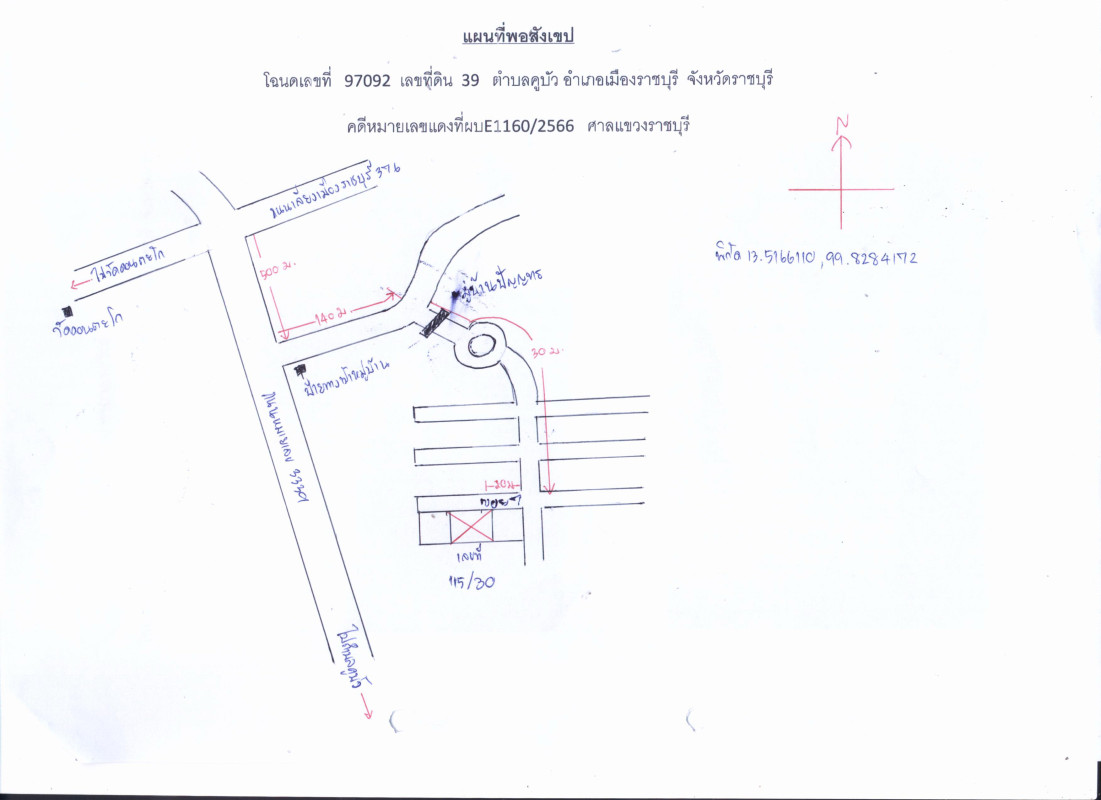 แผนที่พอสังเขป
โฉนดเลขที่ 97092 เลขที่ดิน 39 ตำบลคูบัว อำเภอเมืองราชบุรี จังหวัดราชบุรี
คดีหมายเลขแดงที่ผบE1160/2566 ศาลแขวงราชบุรี
N
ถนนเลี่ยงเมืองราชบุรี 376
ไปวัดดอนตะโก
พิกัด 13.5166110, 99.8284172
500 ม.
หมู่บ้านปัญญทร
วัดดอนตะโก
140 ม
30 ม.
ป้ายทางเข้าหมู่บ้าน
ถนนหมายเลข 3339
20ม
ซอย 7
เลขที่
115/30